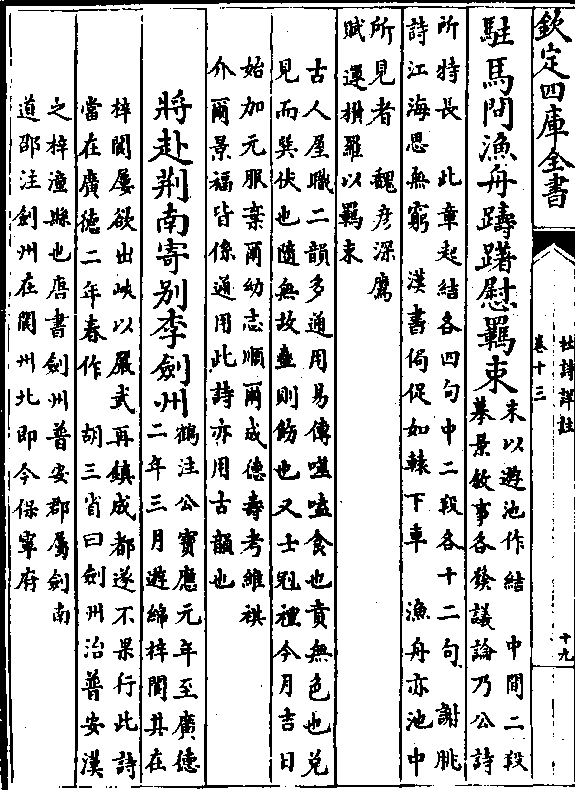 欽定四庫全書
杜詩詳註
卷十三
十九
駐馬問漁舟躊躇慰羈束
末以遊池作結 中間二段
摹景敘事各發議論乃公詩
所特長 此章起結各四句中二段各十二句 謝朓
詩江海思無窮 漢書侷促如轅下車 漁舟亦池中
所見者 魏彥深鷹
賦運横羅以羈束
古人屋職二韻多通用易傳噬嗑食也賁無色也兌
見而巽伏也隨無故蠱則飭也又士冠禮今月吉日
始加元服棄爾幼志順爾成德壽考維祺
介爾景福皆係通用此詩亦用古韻也
將赴荊南寄別李劍州
鶴注公寶應元年至廣德
二年三月遊綿梓閬其在
梓閬屢欲出峽以嚴武再鎮成都遂不果行此詩
當在廣德二年春作 胡三省曰劍州治普安漢
之梓潼縣也唐書劍州普安郡屬劍南
道邵注劍州在閬州北即今保寧府